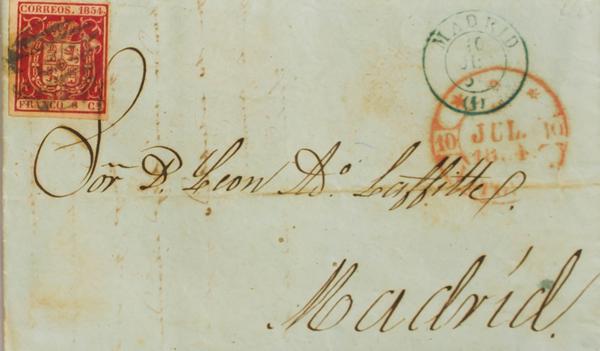 CORREOS. 1854.
FRANCO 6 Cs
MADRID
10
JUL
(1)
10 JUL. 10
Sor. D. Leon Ad.º Laffitte.
Madrid.